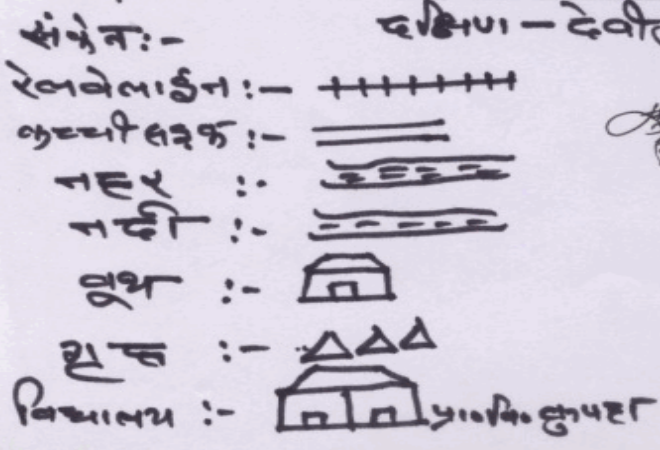 संकेत:- दक्षिण - देवी
रेलवेलाईन:-
कच्ची सड़क:-
नहर :-
नदी :-
बूथ :-
:-
विद्यालय :- प्रा०वि०कुपहा